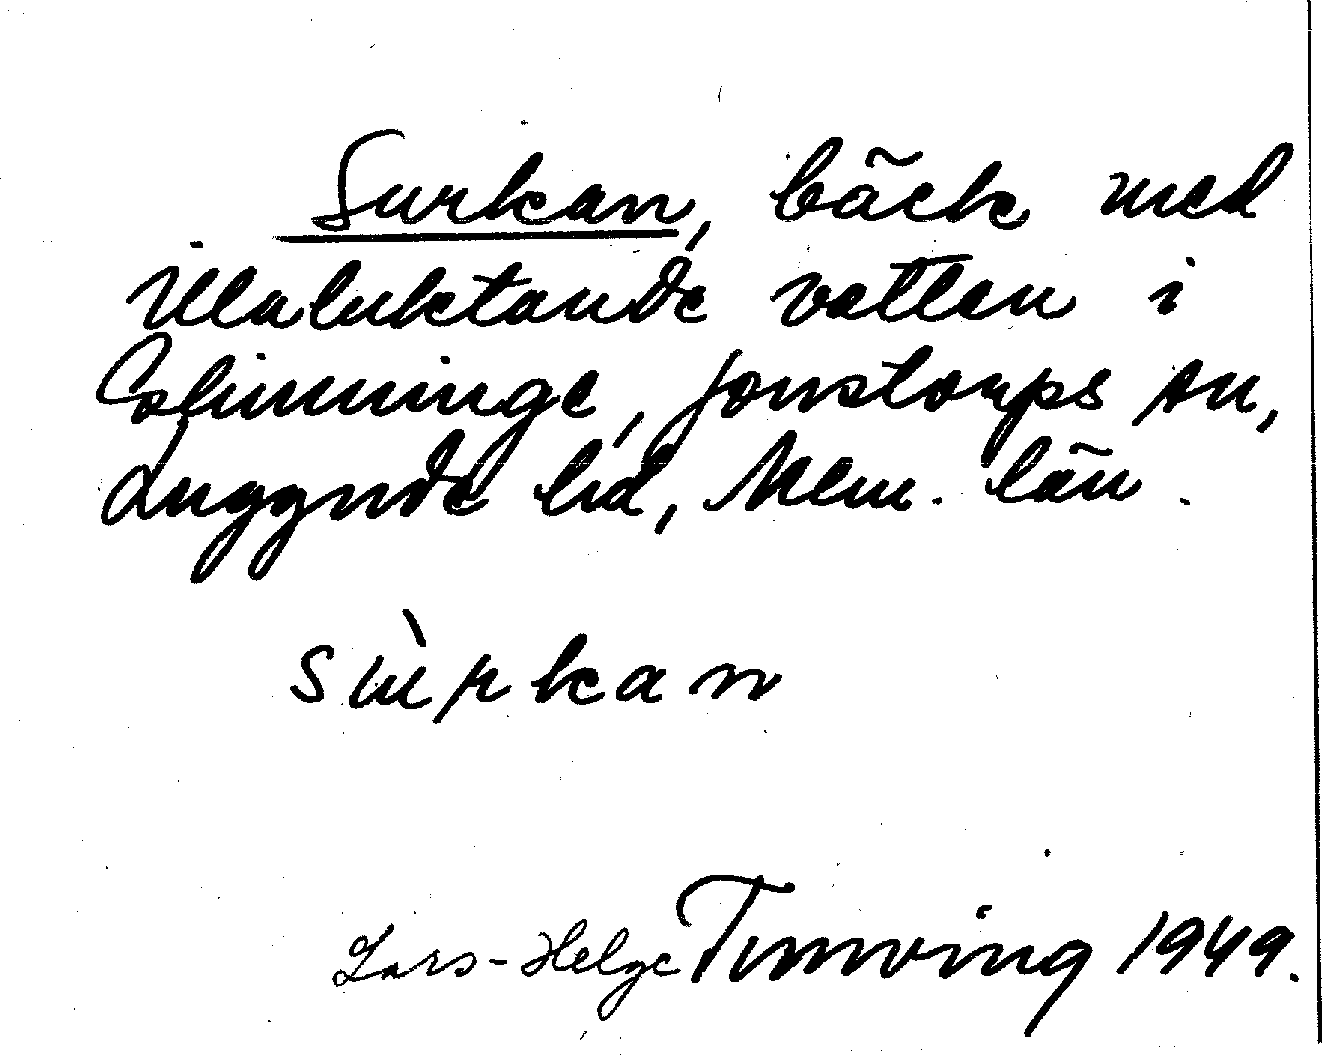 Surkan, bäck med
illaluktande vatten i
Gölinninge, Jonstorps sn,
Luggude hd, Mlm. län.
sùrkan
Lars-Helge Tunving 1949.